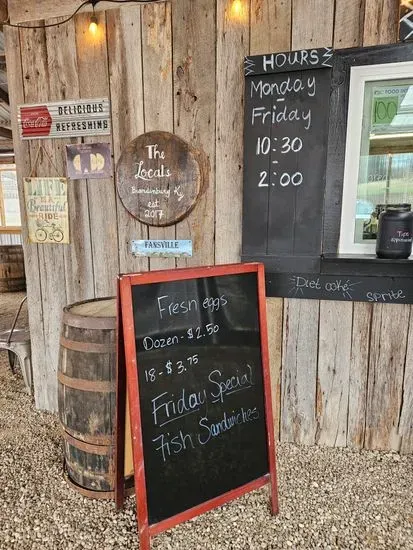 HOURS
Monday
-
Friday
10:30
-
2:00
DELICIOUS
REFRESHING
Coca-Cola
The
Locals
Brandenburg Ky
est
2017
LIFE
Beautiful
RIDE
FANSVILLE
Tips
Diet Coke
Sprite
Fresh eggs
Dozen - $2.50
18 - $3.75
Friday Special
Fish Sandwiches